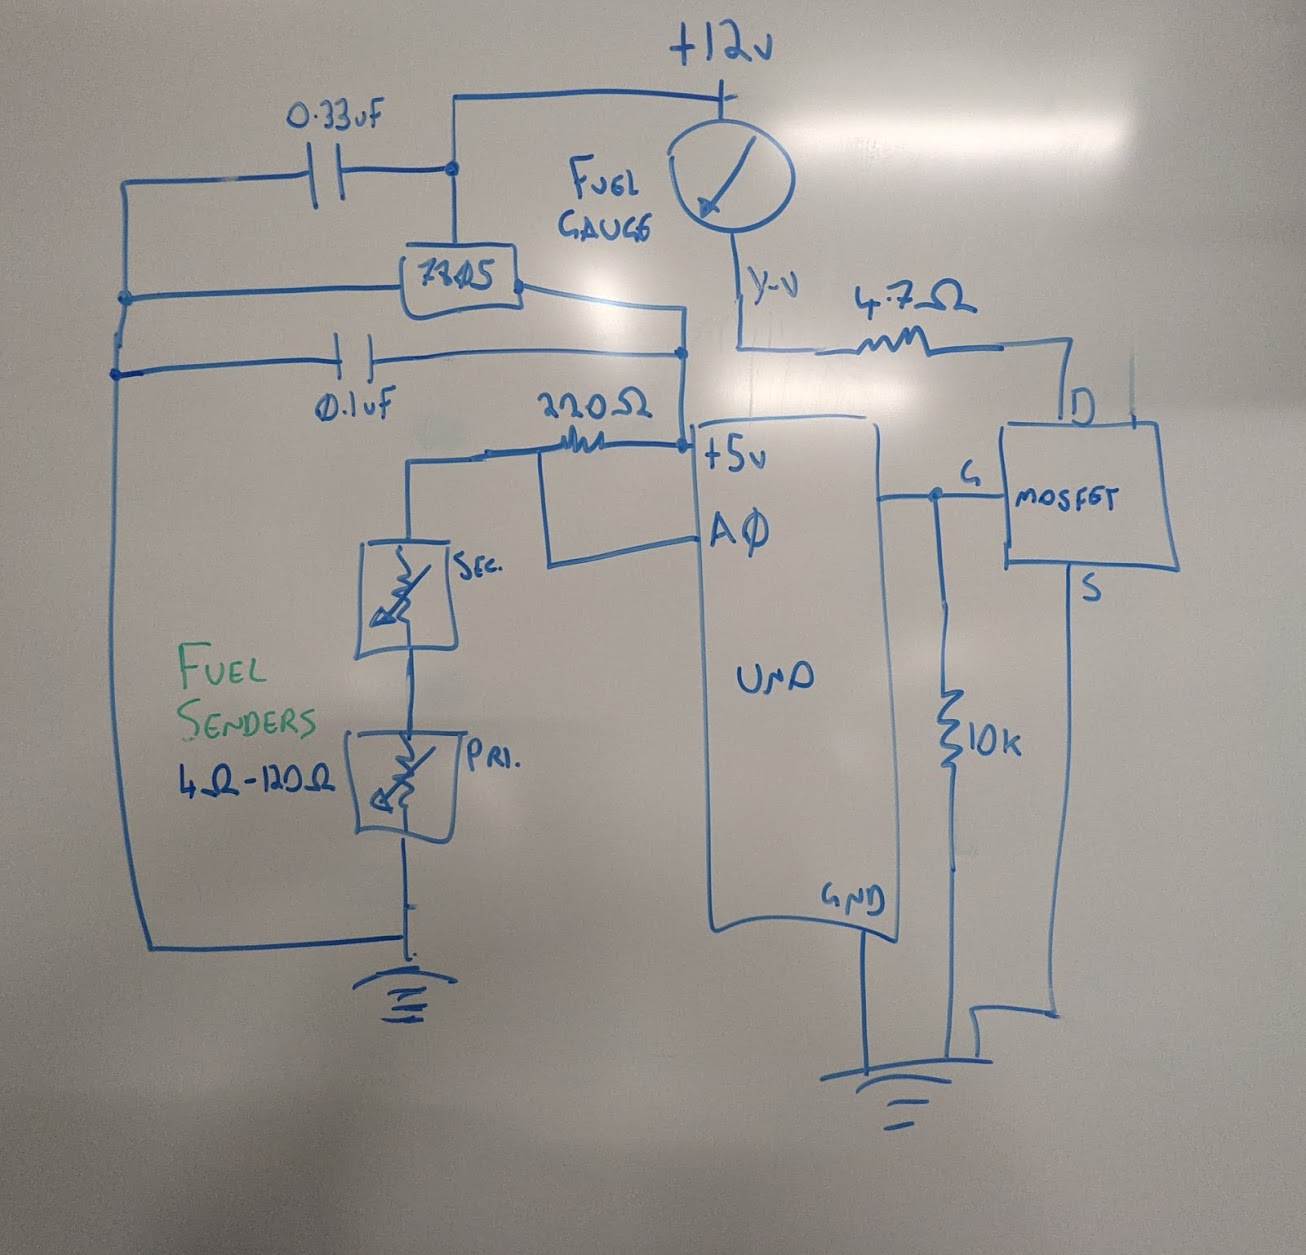 +12v
0.33uF
FUEL
GAUGE
7805
y-v
4.7Ω
0.1uF
220Ω
D
+5v
G
MOSFET
A0
SEC.
S
FUEL
SENDERS
4Ω-120Ω
UNO
PRI.
10K
GND